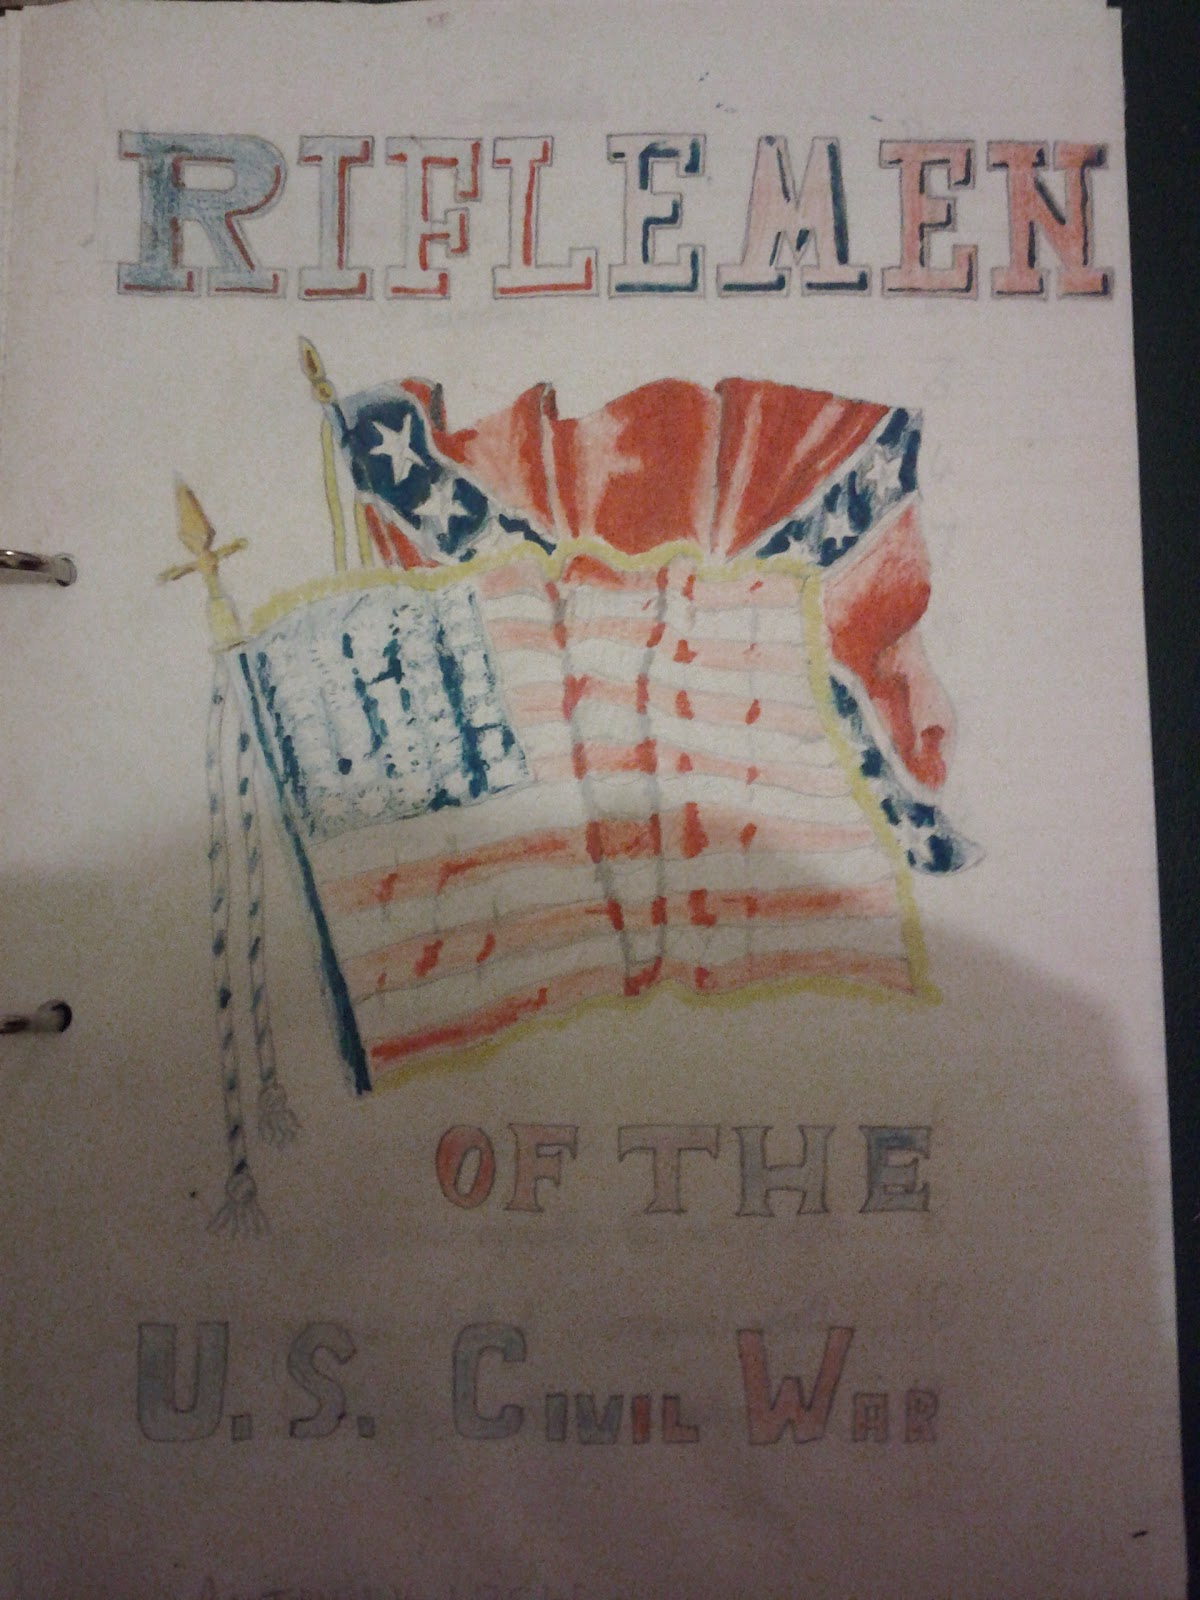 RIFLEMEN
OF THE
U.S. CIVIL WAR